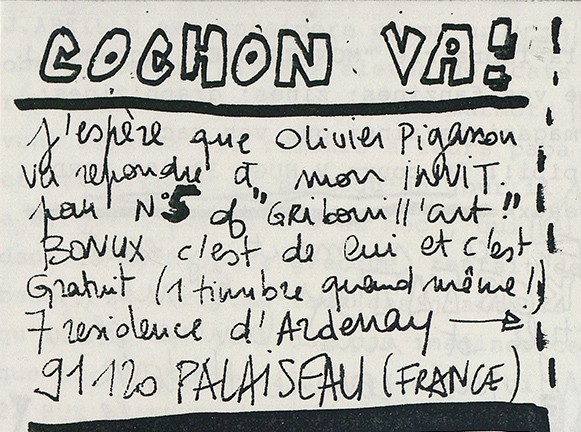 COCHON VA!
J'espère que Olivier Pigasson
va repondre à mon INVIT
pour N°5 of "GRibouill'art"
BONUX c'est de lui et c'est
Gratuit (1 timbre quand même!)
7 residence d'Ardenay →
91120 PALAISEAU (FRANCE)